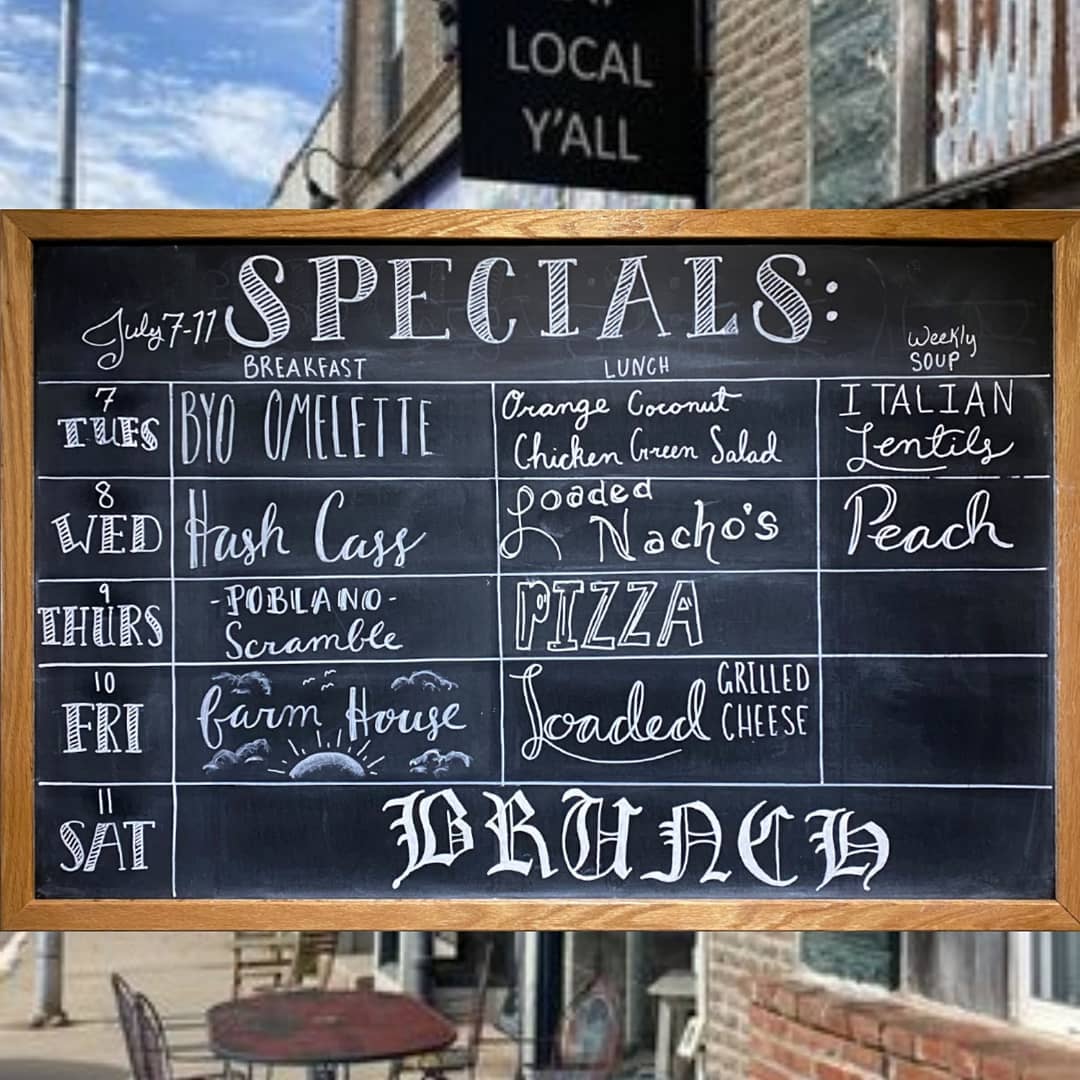 LOCAL
Y'ALL
SPECIALS:
July 7-11
BREAKFAST
LUNCH
Weekly
SOUP
7
TUES
BYO OMELETTE
Orange Coconut
Chicken Green Salad
ITALIAN
Lentils
8
WED
Hash Cass
Loaded
Nacho's
Peach
9
THURS
-POBLANO-
Scramble
PIZZA
10
FRI
farm House
Loaded
GRILLED
CHEESE
11
SAT
BRUNCH